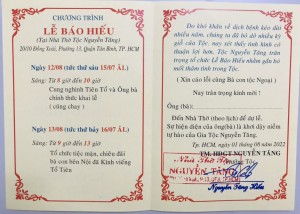 CHƯƠNG TRÌNH
LỄ BÁO HIẾU
(Tại Nhà Thờ Tộc Nguyễn Tăng)
20/10 Đồng Xoài, Phường 13, Quận Tân Bình, TP. HCM
Ngày 12/08 (tức thứ sáu 15/07 ÂL)
Sáng: Từ 8 giờ đến 10 giờ
Cung nghinh Tiên Tổ và Ông bà
chính thức khai lễ
( cúng chay )
Ngày 13/08 (tức thứ bảy 16/07 ÂL)
Sáng: Từ 9 giờ đến 13 giờ
Tổ chức tiệc mặn, chiêu đãi
bà con bên Nội đã Kính viếng
Tổ Tiên
Do khó khăn về dịch bệnh kéo dài
nhiều năm, chúng ta đã bỏ dở nhiều kỳ
giỗ của Tộc, nay xét thấy tình hình có
thuận lợi hơn, Tộc Nguyễn Tăng trân
trọng tổ chức Lễ Báo Hiếu nhằm gắn bó
mối thâm tình trong Tộc.
( Xin cáo lỗi cùng Bà con tộc Ngoại )
Nay trân trọng kính mời !
Ông (bà):
Đến Nhà Thờ (theo lịch) để dự lễ.
Sự hiện diện của ông(bà) là khơi dậy niềm
tự hào của Gia Tộc chúng ta.
Tp. HCM, ngày 01 tháng 08 năm 2022
TM-HĐGT NGUYỄN TĂNG
Trưởng Tộc
NGUYỄN TĂNG
Nguyễn Tăng Hiếu